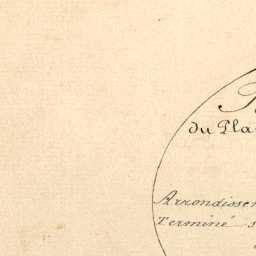 du Pla
Arrondissem
Terminé s